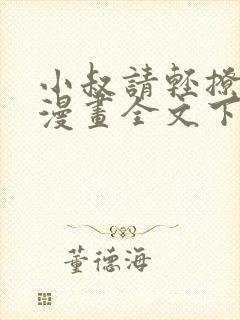 小叔請輕撩
漫畫全文下
董德海